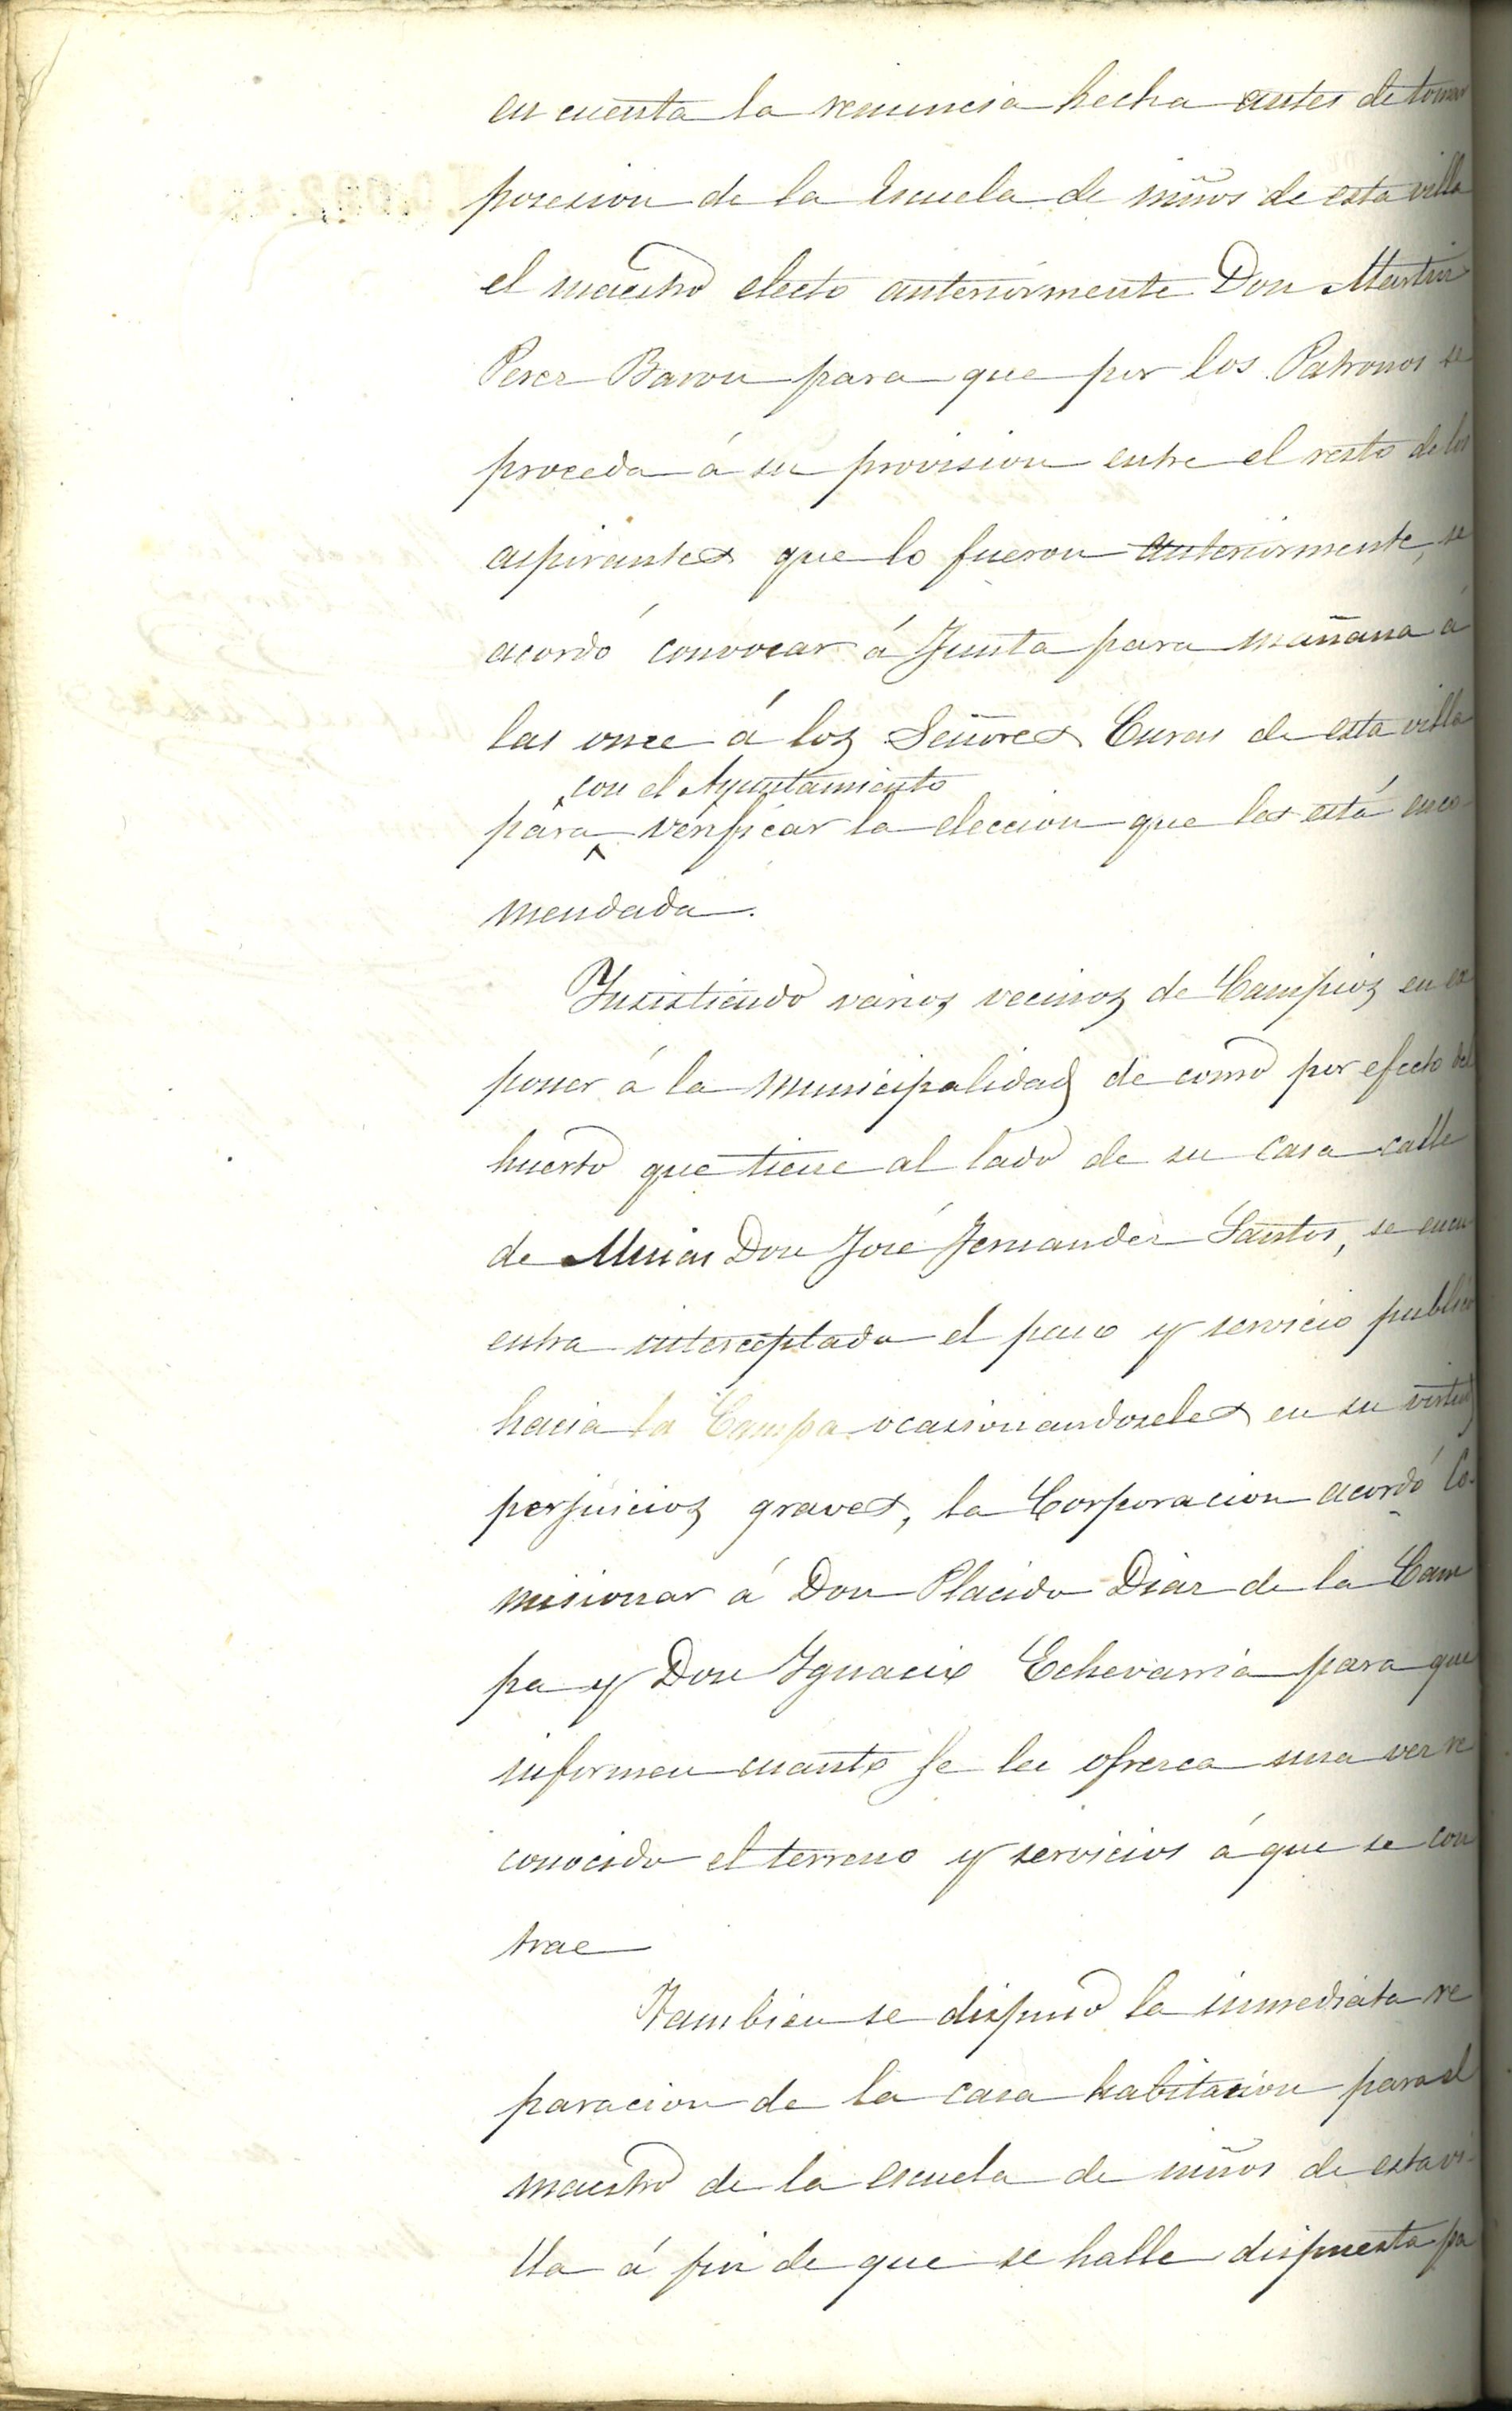 en cuenta la renuncia hecha antes de tomar
posesion de la Escuela de niños de esta villa
el maestro electo anteriormente Don Martin
Perez Baron para que por los Patronos se
proceda á su provision entre el resto de los
aspirantes que lo fueron anteriormente, se
acordó convocar á Junta para mañana á
las once á los Señores Curas de esta villa
con el Ayuntamiento
para verificar la eleccion que les está enco
mendada.
Insistiendo varios vecinos de Campios en ex
poner á la municipalidad de como por efecto del
huerto que tiene al lado de su casa calle
de Murias Don José Fernandez Santos, se encu
entra interceptado el paso y servicio publico
hacia la Campa ocasionandoseles en su virtud
perjuicios graves, la Corporacion acordó Co-
misionar á Don Placido Diaz de la Cam
pa y Don Ignacio Echevarria para que
informen cuanto se les ofrezca una vez re
conocido el terreno y servicios á que se con
trae
Tambien se dispuso la inmediata re
paracion de la casa habitacion para el
maestro de la escuela de niños de esta vi-
lla á fin de que se halle dispuesta pa